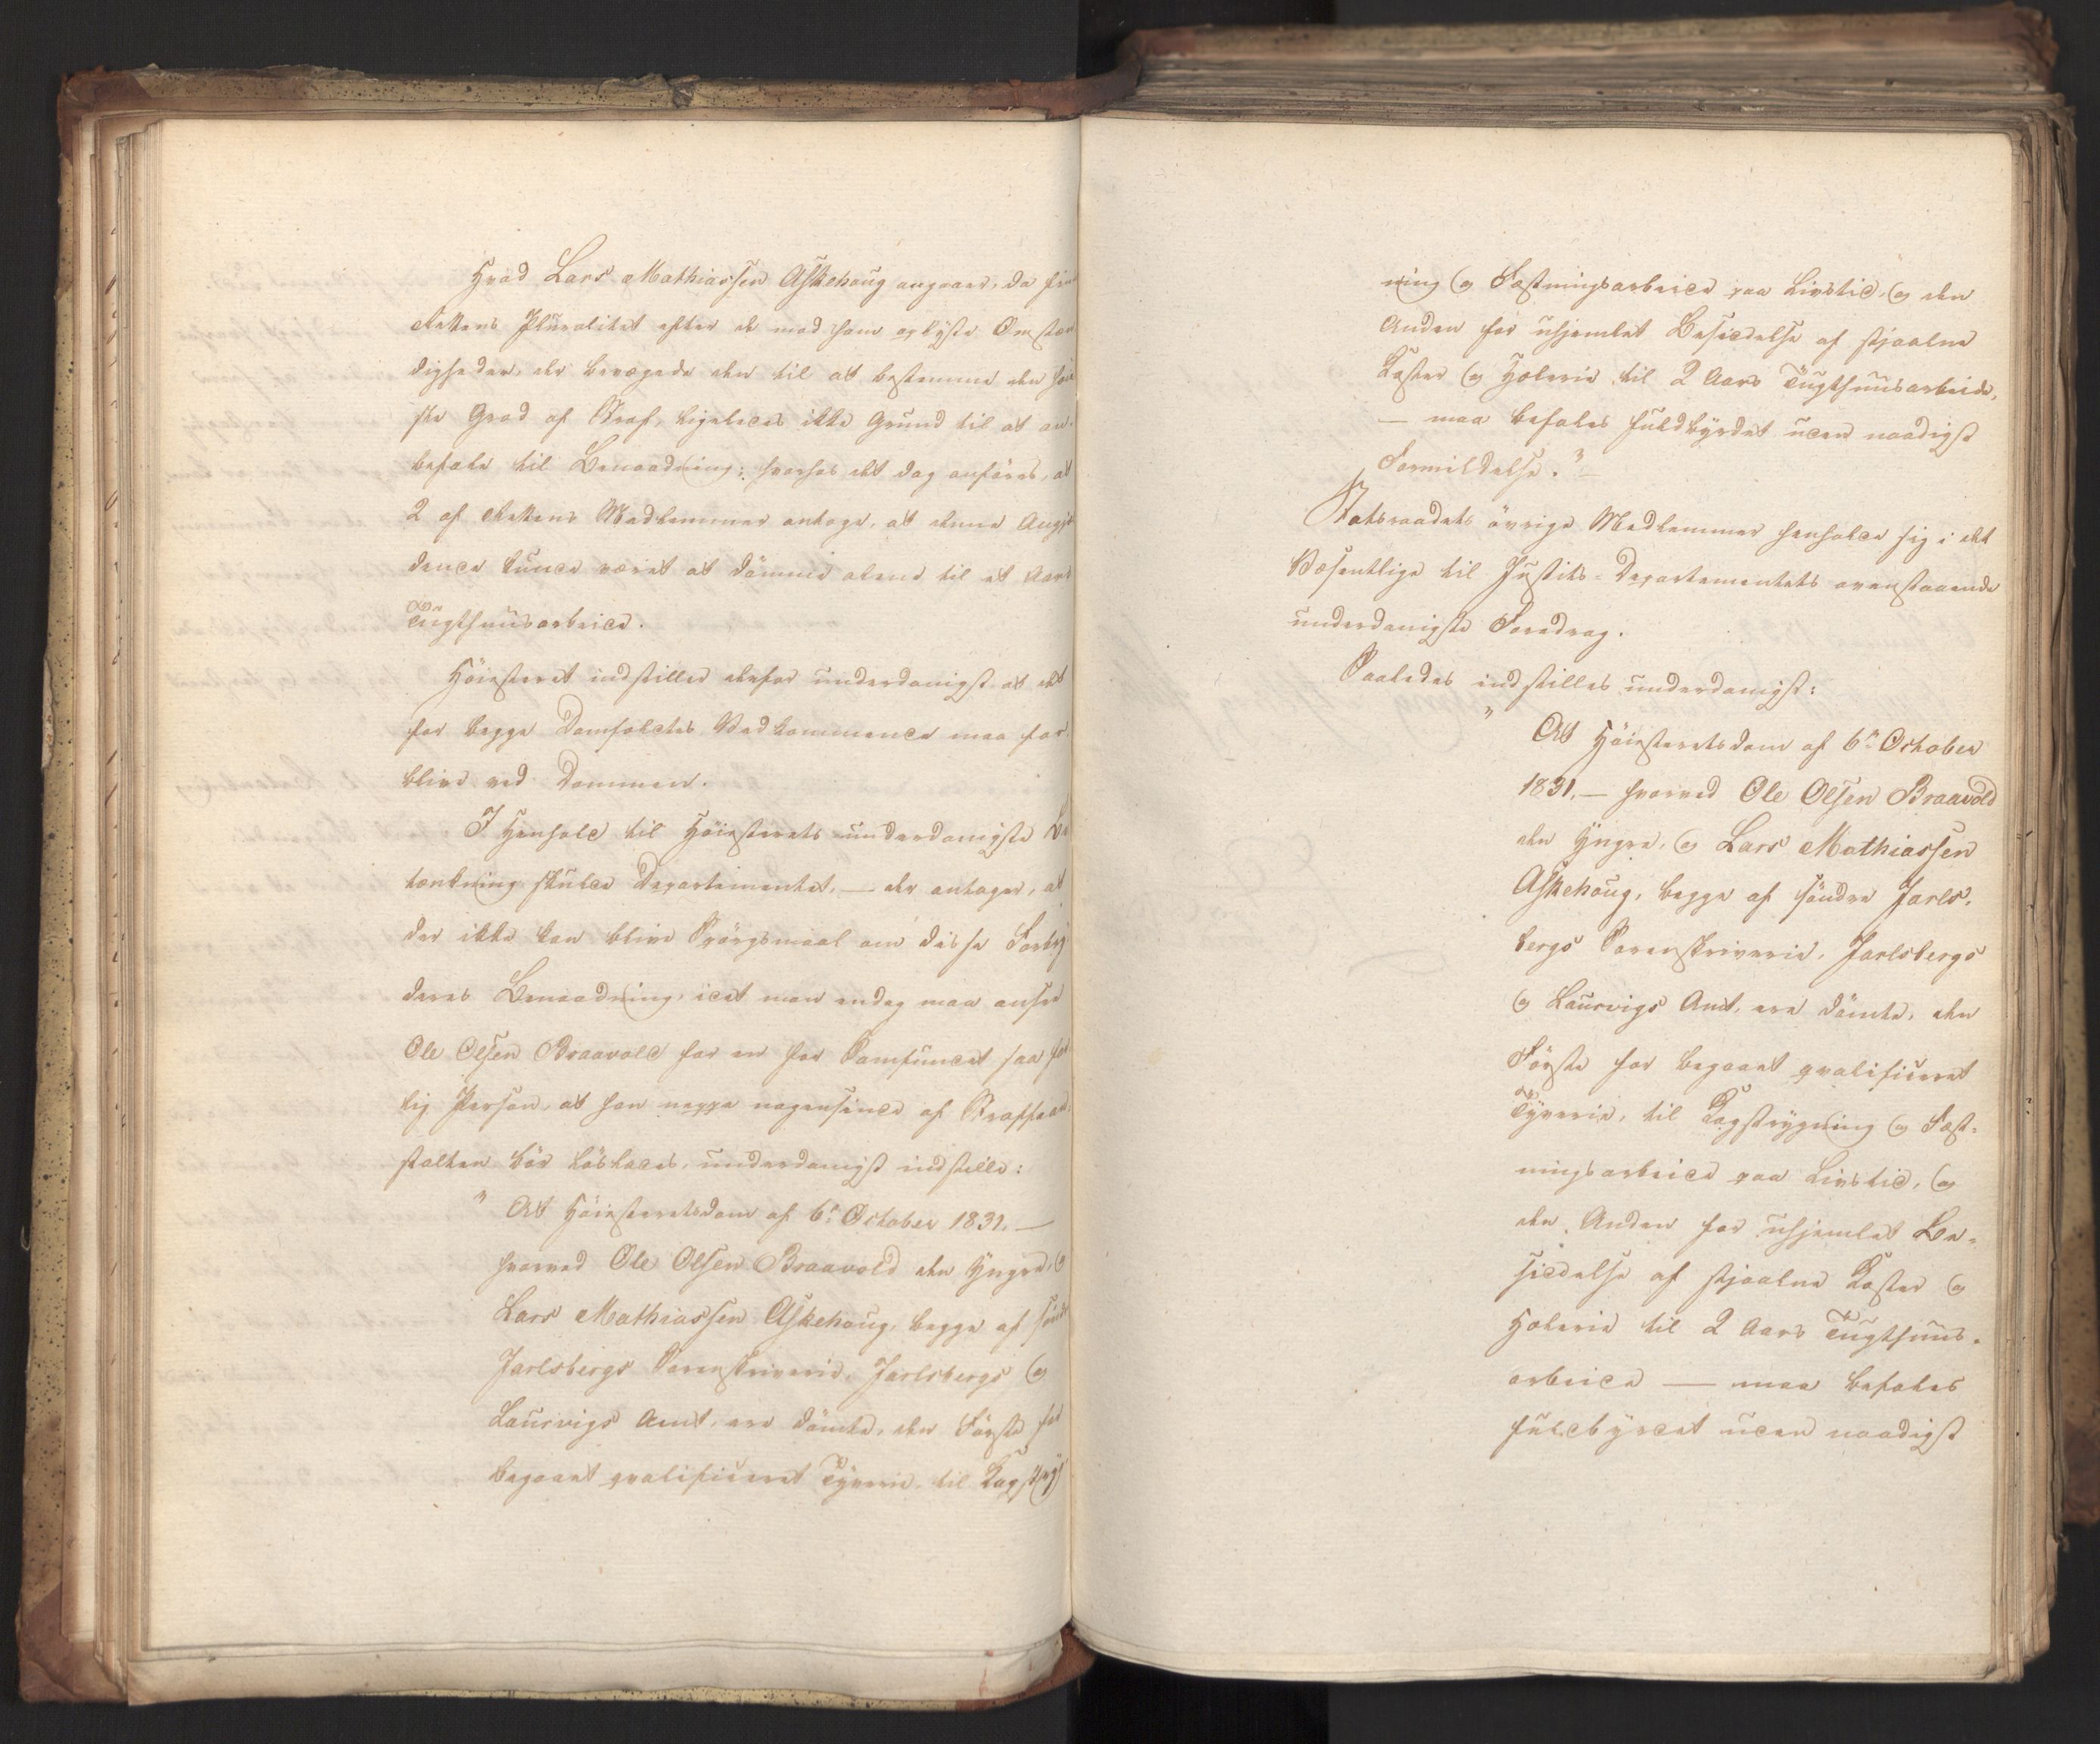 Hvad Lars Mathiassen Askehoug angaaer, da fin
Rettens Pluralitet efter de mod ham oplyste Omstæn
digheder, der bevægede den til at bestemme den høie
ste Grad af Straf, ligeledes ikke Grund til at an-
befale til Benaadning; hvorhos det dog anføres, at
2 af Rettens Medlemmer antoge, at denne Angje
dende kunde været at dømme alene til et Aars
Tugthuusarbeide.
Høiesteret indstiller derfor underdanigst at det
for begge Domfældtes Vedkommende maa for-
blive ved Dommen.
I Henhold til Høiesterets underdanigste Be
tænkning skulde Departementet, — der antager, at
der ikke kan blive Spørgsmaal om disse Forbry
deres Benaadning, idet man endog maa ansee
Ole Olsen Braavold for en for Samfundet saa far
lig Person, at han neppe nogensinde af Straffean-
stalten bør løslades, underdanigst indstille:
" At Høiesteretsdom af 6te October 1831, —
hvorved Ole Olsen Braavold den Yngre, og
Lars Mathiassen Askehoug, begge af søndre
Jarlsbergs Sorenskriverie, Jarlsbergs og
Laurvigs Amt, ere dømte, den Første for
begaaet qvalificeret Tyverie, til Kagstryg
ning og Fæstningsarbeide paa Livstid, og den
Anden for uhjemlet Besiddelse af stjaalne
Koster og Hæleri til 2 Aars Tugthuusarbeide,
— maa befales fuldbyrdet uden naadigst
Formildelse."
Statsraadets øvrige Medlemmer henholde sig i det
Væsentlige til Justits-Departementets ovenstaaende
underdanigste Foredrag.
Saaledes indstilles underdanigst:
" At Høiesteretsdom af 6te October
1831, — hvorved Ole Olsen Braavold
den Yngre, og Lars Mathiassen
Askehoug, begge af søndre Jarls-
bergs Sorenskriverie, Jarlsbergs
og Laurvigs Amt, ere dømte, den
Første for begaaet qvalificeret
Tyverie, til Kagstrygning og Fæst-
ningsarbeide paa Livstid, og
den Anden for uhjemlet Be-
siddelse af stjaalne Koster og
Hælerie til 2 Aars Tugthuus-
arbeide — maa befales
fuldbyrdet uden naadigst